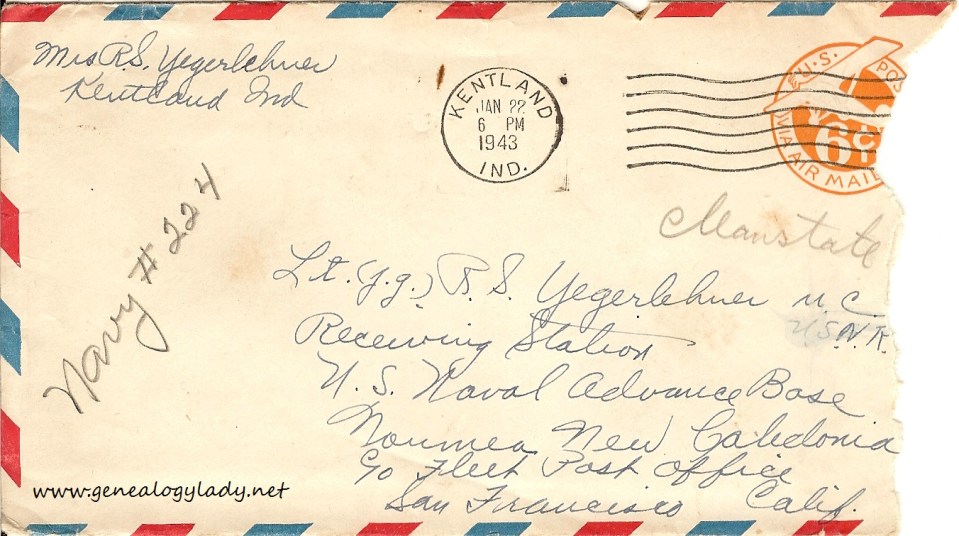 Mrs R.S. Yegerlehner
Kentland Ind
KENTLAND
JAN 22
6 PM
1943
IND.
U.S. POS
6¢
VIA AIR MAIL
Navy # 224
Lt. (j.g.) R. S. Yegerlehner M C
U.S.N.R.
Receiving Station
U. S. Naval Advance Base
Noumea New Caledonia
c/o Fleet Post Office
San Francisco Calif.
www.genealogylady.net